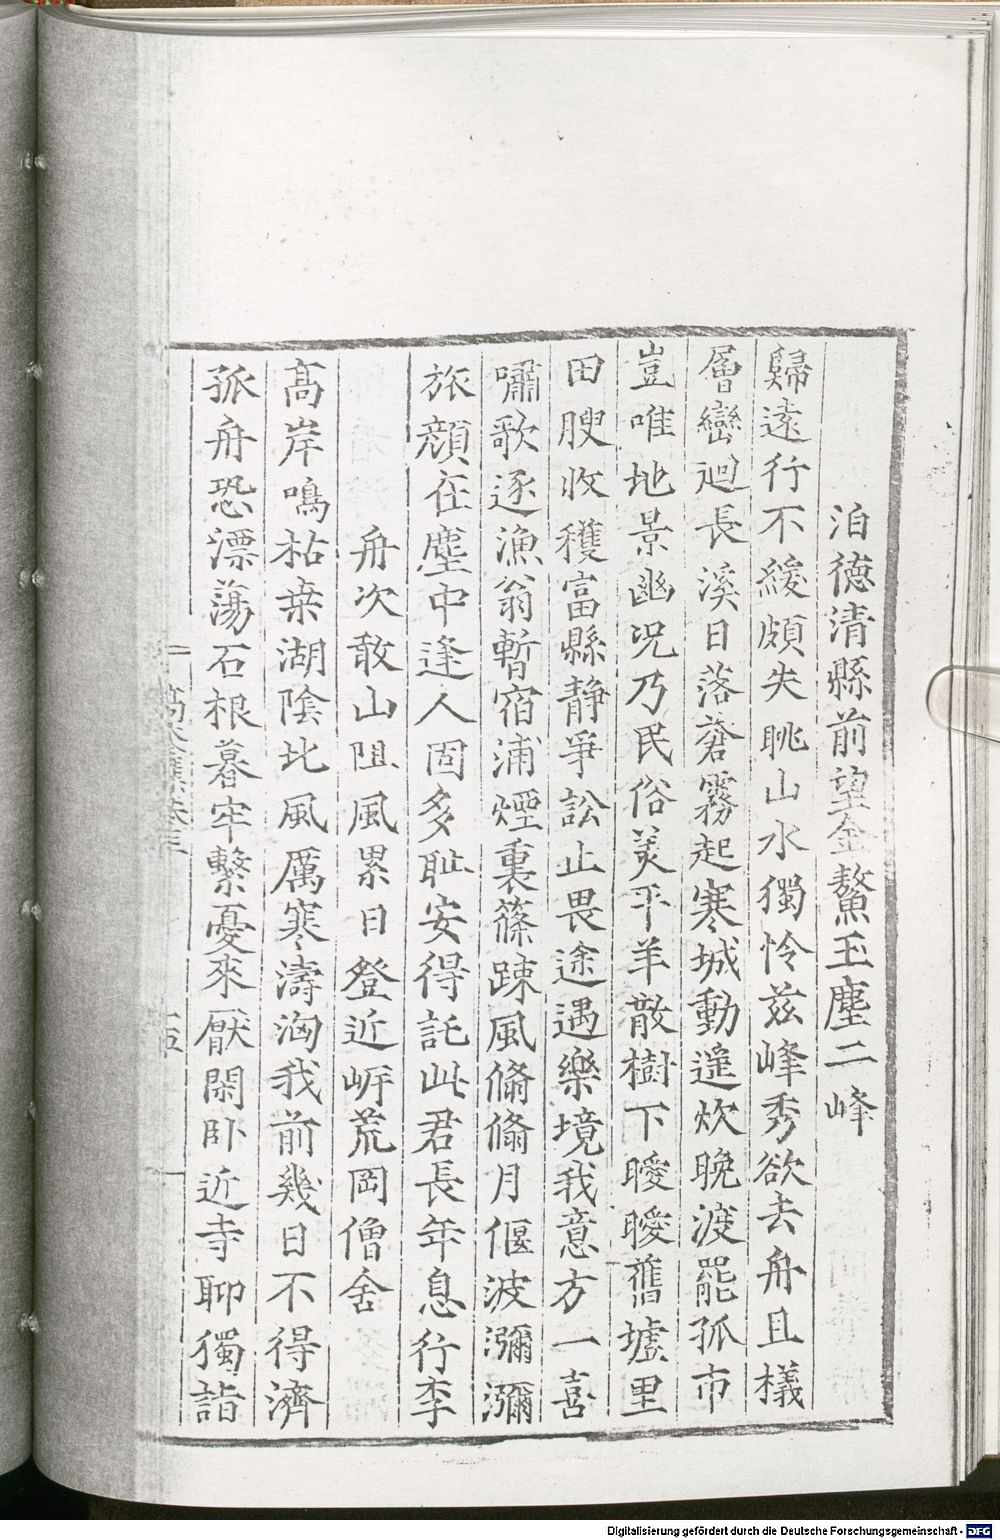 泊德清縣前望金鰲玉塵二峰
歸遠行不緩頗失眺山水獨怜茲峰秀欲去舟且檥
層巒迴長溪日落蒼霧起寒城動遥炊晚渡罷孤市
豈唯地景幽况乃民俗美平羊散樹下曖曖舊墟里
田腴收穫富縣静爭訟止畏途遇樂境我意方一喜
嘯歌逐漁翁暫宿浦煙裏篠踈風翛翛月偃波瀰瀰
旅顔在塵中逢人固多耻安得託此君長年息行李
舟次敢山阻風累日登近㟁荒岡僧舍
高岸鳴枯桒湖陰北風厲寒濤洶我前幾日不得濟
孤舟恐漂蕩石根暮牢繫憂來厭閑卧近寺聊獨詣
Digitalisierung gefördert durch die Deutsche Forschungsgemeinschaft - DFG